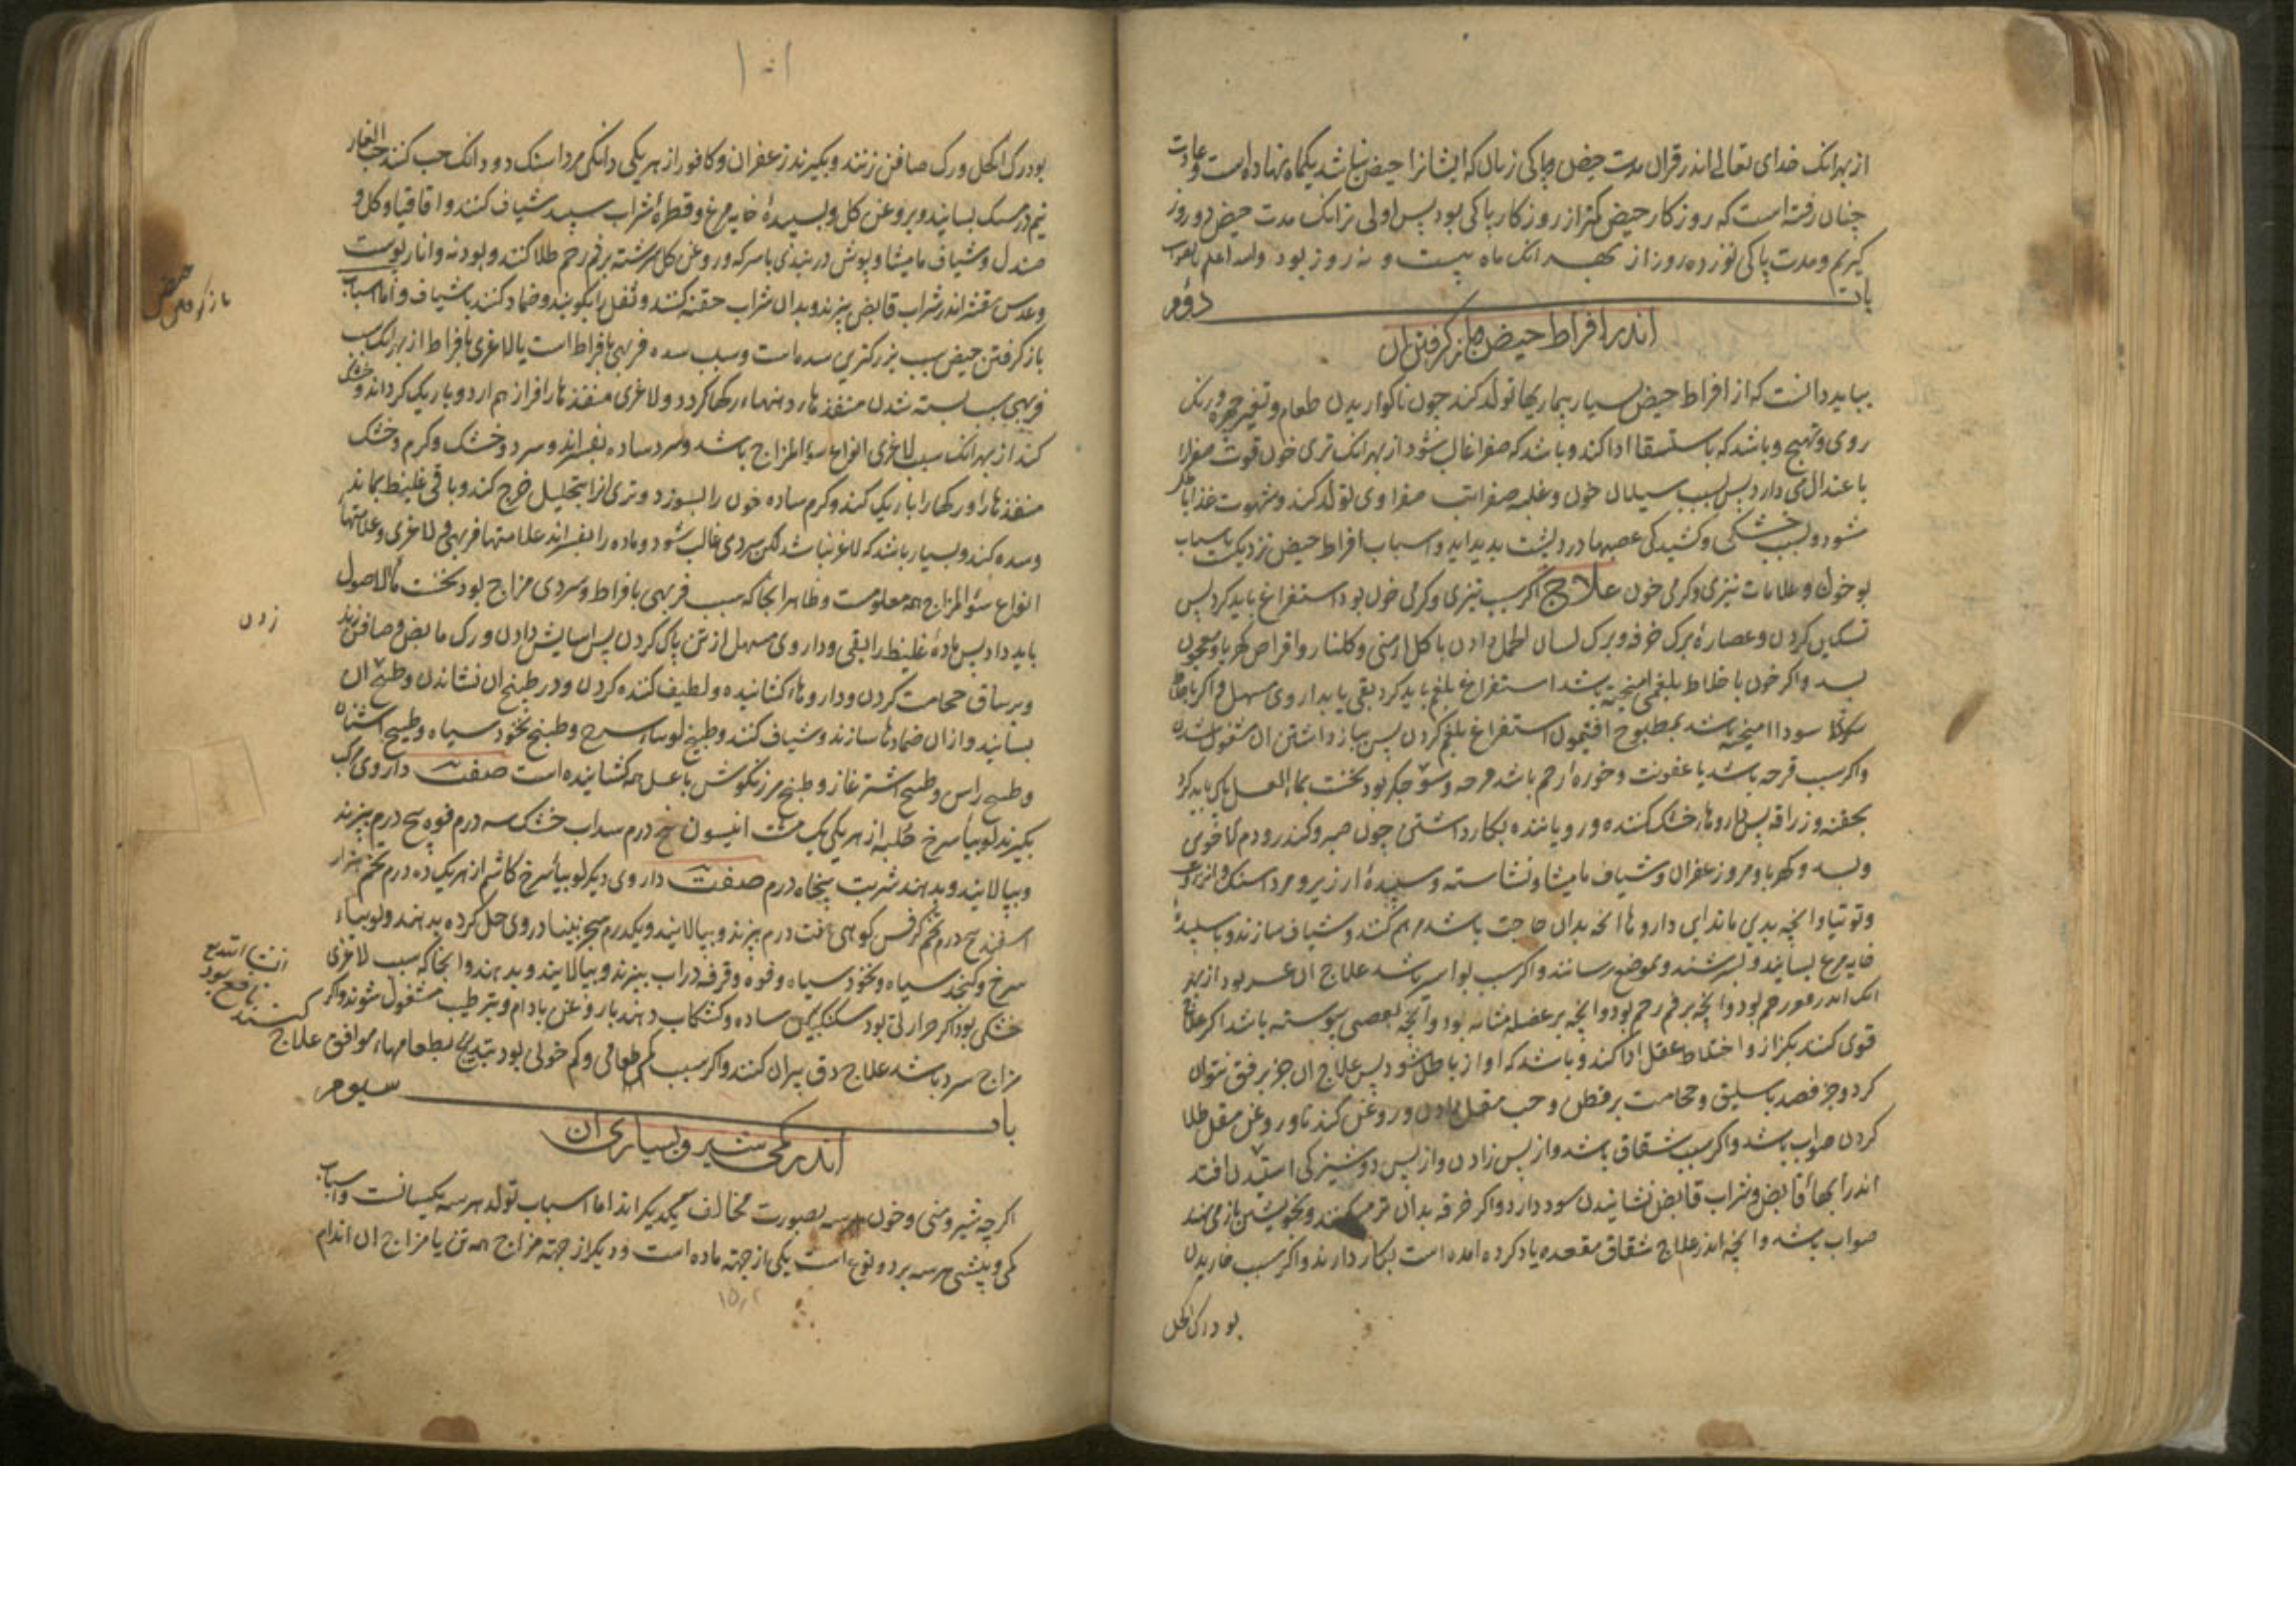 از بهر انک خدای تعالی اندر قران مدت حیض و پاکی زنان که ایشانرا حیض نباشد یکماه نهاده است و عادت
چنان رفته است که روزکار حیض کمتر از روزکار پاکی بود پس اولی تر انک مدت حیض ده روز
کیریم و مدت پاکی نوزده روز از بهر انک ماه بیست و نه روز بود والله اعلم بالصواب
باب دوم
اندر افراط حیض و باز کرفتن ان
بباید دانست که از افراط حیض بسیار بیماریها تولد کند چون ناکواریدن طعام و تغیر چهره و رنک
روی و تهبج و باشد که باستسقا ادا کند و باشد که صفرا غالب شود از بهر انک تری خون قوت صفرا را
باعتدال می دارد پس بسبب سیلان خون و غلبه صفرا تب صفراوی تولد کند و شهوت غذا باطل
شود و بسبب خشکی و کشیدکی عصبها درد پشت بدید اید و اسباب افراط حیض نزدیکست باسباب
بو خون و علامات تیزی و کرمی خون علاج اکر سبب تیزی و کرمی خون بود استفراغ باید کرد پس
تسکین کردن و عصاره برک خرفه و برک لسان الحمل دادن با کل ارمنی و کلنار و اقراص کهربا و معجون
بسد و اکر خون با خلط بلغمی امیخته باشد استفراغ بلغم باید کرد بقی یا بداروی مسهل و اکر با خلط
سودا امیخته باشد بمطبوخ افتیمون استفراغ بلغم کردن پس بباز داشتن ان مشغول شدن
و اکر سبب قرحه باشد یا عفونت و خوره ارحم باشد قرحه و سوء جکر بود نخست بماء العسل پاک باید کرد
بحقنه و زراقه پس داروهاء خشک کننده و رویاننده بکار داشتن چون صبر و کندر و دم الاخوین
و بسد و کهربا و مر و زعفران و شیاف مامیثا و نشاسته و سپیده ارزیز و مرداسنک و انزروت
و توتیا و انچه بدین ماند این داروها انچه بدان حاجت باشد مرهم کنند و شیاف سازند و با سپیده
خایه مرغ بسایند و بسرشند و بموضع رسانند و اکر سبب بواسیر باشد علاج ان عسر بود از بهر
انک اندر قعر رحم بود و انچه بر فم رحم بود و انچه بر عضله مثانه بود و انچه بعصبی پیوسته باشد اکر علاج
قوی کنند بکزاز و اختلاط عقل ادا کند و باشد که اواز باطل شود پس علاج ان جز برفق نتوان
کرد و جز فصد باسلیق و حجامت بر قطن و حب مقل دادن و روغن کند ناور و روغن مقل طلا
کردن صواب باشد و اکر سبب شقاق باشد و از پس زادن و از پس دوشیزکی استدن افتد
اندر ابهاء قابض و شراب قابض نشانیدن سود دارد و اکر خرقه بدان تر میکنند و بخویشتن باز می نهند
صواب باشد و انچه اندر علاج شقاق مقعده یاد کرده امده است بکار دارند و اکر سبب خاریدن
بود رک اکحل
۱۰۱
بود رک اکحل و رک صافن زنند و بکیرند زعفران و کافور از هر یکی دانکی مرداسنک دو دانک حب کنند حب الغار
نیم درمسنک بسایند و بروغن کل و بسپیدۀ خایه مرغ و قطرۀ شراب سپید شیاف کنند و اقاقیا و کل و
صندل و شیاف مامیثا و پوش دربندی با سرکه و روغن کل سرشته بر فم رحم طلا کنند و پودنه و انار پوست
و عدس مقشر اندر شراب قابض بپزند و بدان شراب حقنه کنند و ثفل را بکوبند و ضماد کنند یا شیاف و اما اسباب
باز کرفتن حیض سبب بزرکترین سده ماست و سبب سده فربهی بافراط است یا لاغری بافراط از بهر انک سبب
فربهی سبب بسته شدن منفذها و دهنهاء رکها کردد و لاغری منفذها را فراز هم ارد و باریک کرداند و خشک
کند از بهر انک سبب لاغری انواع سوء المزاج باشد و سرد ساده بفسراند و سرد و خشک و کرم و خشک
منفذها را و رکها را باریک کند و کرم ساده خون را بسوزد و تری انرا بتحلیل خرج کند و باقی غلیظ بماند
و سده کند و بسیار باشد که لاغر نباشد لکن سردی غالب شود و ماده را بفسراند علامتها فربهی و لاغری و علامتها
انواع سوء المزاج همه معلومست و ظاهر انجا که سبب فربهی بافراط و سردی مزاج بود نخست ماء الاصول
باید داد پس مادۀ غلیظ را بقی و داروی مسهل از تن پاک کردن پس اسایش دادن و رک مابض و صافن زدن
و بر ساق حجامت کردن و داروهاء کشاینده و لطیف کننده کردن و در طبیخ ان نشاندن و طبیخ ان
بسایند و از ان ضمادها سازند و شیاف کنند و طبیخ لوبیاء سرخ و طبیخ نخود سیاه و طبیخ اشنان
و طبیخ راس و طبیخ اشتر غاز و طبیخ مرزنکوش با عسل همه کشاینده است صفت داروی مرکب
بکیرند لوبیاء سرخ حلبه از هر یکی یک مشت انیسون پنج درم سداب خشک سه درم فوه پنج درم بپزند
و بپالایند و بدهند شربت پنجاه درم صفت داروی دیکر لوبیاء سرخ کاشم از هر یک ده درم تخم هزار
اسفند پنج درم تخم کرفس کوهی هفت درم بپزند و بپالایند و یکدرم سجزنیا در وی حل کرده بدهند و لوبیاء
سرخ و کنجد سیاه و نخود سیاه و فوه و قرفه در اب بپزند و بپالایند و بدهند و انجا که سبب لاغری
خشکی بود اکر حرارتی بود سکنکبین ساده و کشکاب دهند با روغن بادام و بترطیب مشغول شوند و اکر
مزاج سرد باشد علاج دق پیران کنند و اکر سبب کم طعامی و کم خونی بود بتدبیر بطعامهاء موافق علاج کنند
انشا الله نافع بود
باب سیوم
اندر کمی شیر و بسیاری ان
اکر چه شیر و منی و خون هر سه بصورت مخالف یکدیکراند اما اسباب تولد هر سه یکیسانست و اسباب
کمی و بیشی هر سه بر دو نوع است یکی از جهة ماده است و دیکر از جهة مزاج همه تن یا مزاج ان اندام
حیض
زدن